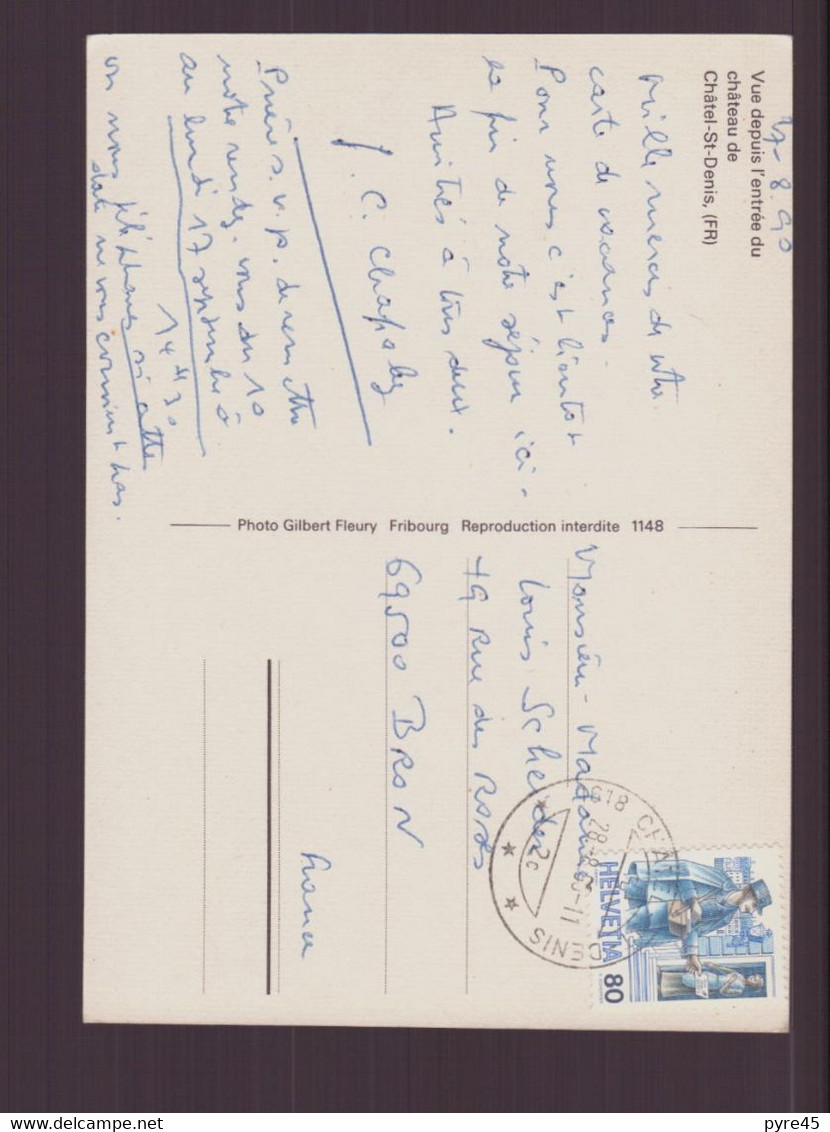 Vue depuis l'entrée du
château de
Châtel-St-Denis, (FR)
27-8.90
Mille mercis de votre
carte de vacances.
Pour nous c'est bientôt
la fin de notre séjour ici.
Amitiés à tous deux.
J. C.
Prière s.v.p. de remettre
notre rendez-vous du 10
au lundi 17 septembre à
14 H 30
ou nous téléphoner si cette
date ne vous convient pas.
Photo Gilbert Fleury Fribourg Reproduction interdite 1148
Monsieur - Madame
Louis
19 Rue des Roses
69500 BRON
France
1618 CHÂTEL-ST-DENIS
28-8-90-11
2c
HELVETIA
80
pyre45